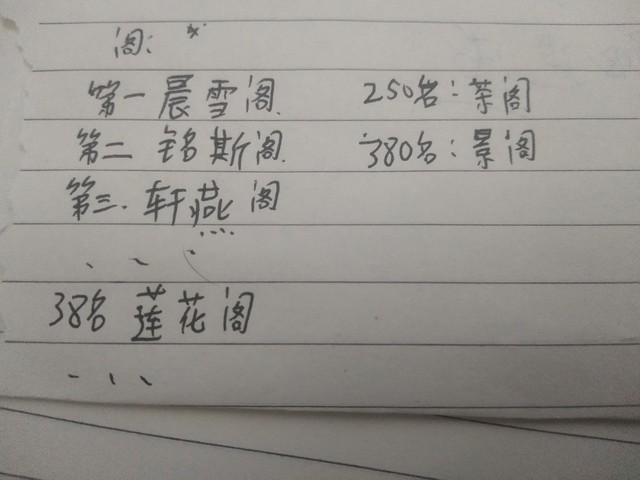 阁:
第一晨雪阁 250名:茶阁
第二 铭斯阁 380名:景阁
第三.轩燕阁
...
38名 莲花阁
...